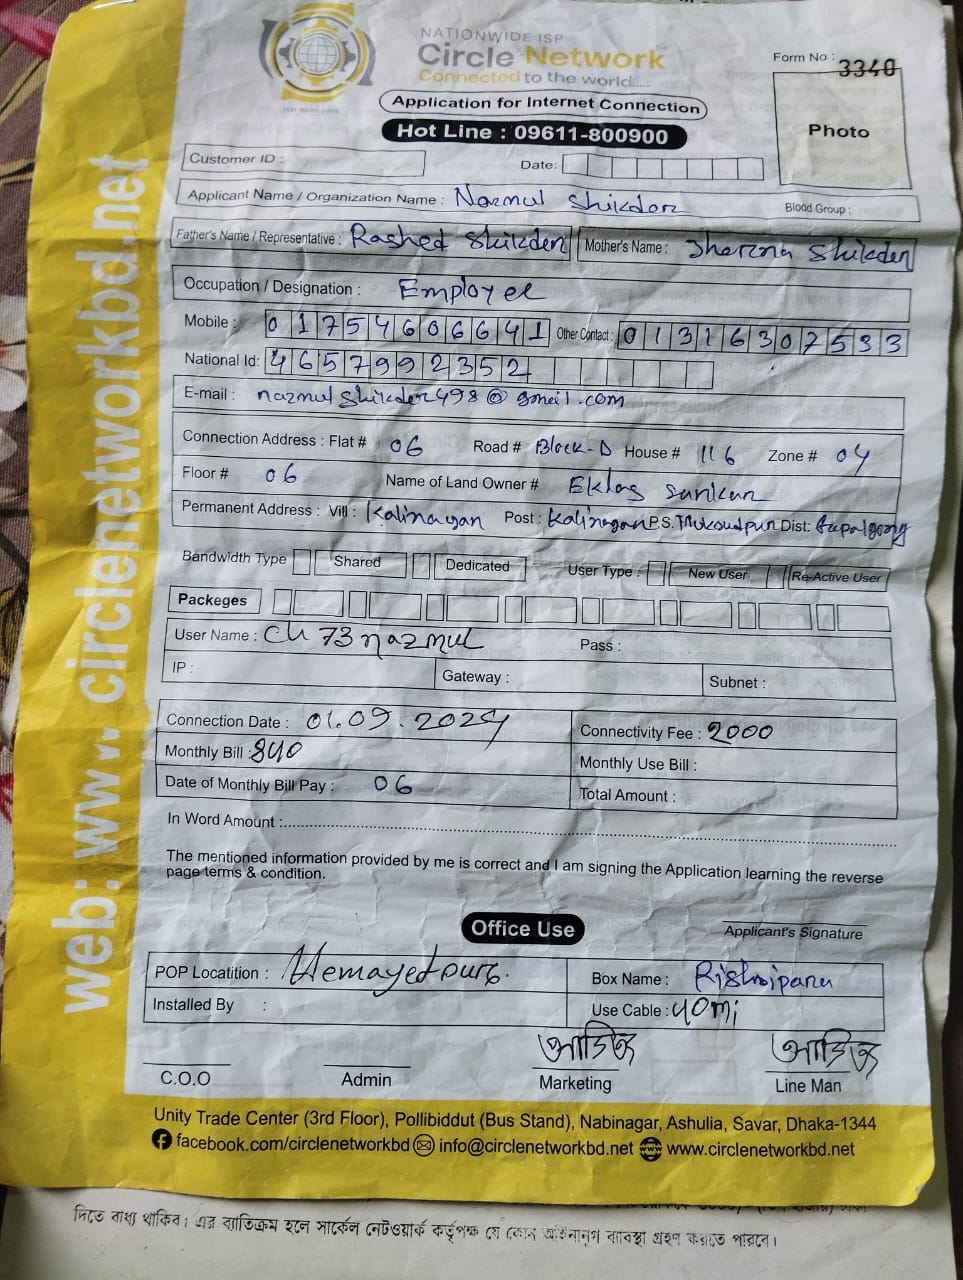 NATIONWIDE ISP
Circle Network
Connected to the world.....
Form No : 3340
Application for Internet Connection
Hot Line : 09611-800900
Photo
Customer ID :
Date:
Applicant Name / Organization Name : Nazmul Shikder
Blood Group :
Father's Name / Representative : Rashed Shikder Mother's Name : Jharna Shikder
Occupation / Designation : Employee
Mobile : 01754606641 Other Contact : 01316307533
National Id: 4657992352
E-mail : nazmulshikder498@gmail.com
Connection Address : Flat # 06 Road # Block-D House # 116 Zone # 04
Floor # 06 Name of Land Owner #
Permanent Address : Vill : Kalinagar Post : Kalinagar P.S. Dist:
Bandwidth Type Shared Dedicated User Type : New User Re-Active User
Packeges
User Name : 73nazmul Pass :
IP : Gateway : Subnet :
Connection Date : 01.09.2024 Connectivity Fee : 2000
Monthly Bill : 840 Monthly Use Bill :
Date of Monthly Bill Pay : 06 Total Amount :
In Word Amount :
The mentioned information provided by me is correct and I am signing the Application learning the reverse
page terms & condition.
Office Use
Applicant's Signature
POP Locatition : Hemayedpure. Box Name : Rishipara
Installed By : Use Cable : 40mi
C.O.O Admin Marketing Line Man
Unity Trade Center (3rd Floor), Pollibiddut (Bus Stand), Nabinagar, Ashulia, Savar, Dhaka-1344
facebook.com/circlenetworkbd info@circlenetworkbd.net www.circlenetworkbd.net
web: www.circlenetworkbd.net
দিতে বাধ্য থাকিব। এর ব্যতিক্রম হলে সার্কেল নেটওয়ার্ক কর্তৃপক্ষ যে কোন আইনানুগ ব্যবস্থা গ্রহণ করতে পারবে।